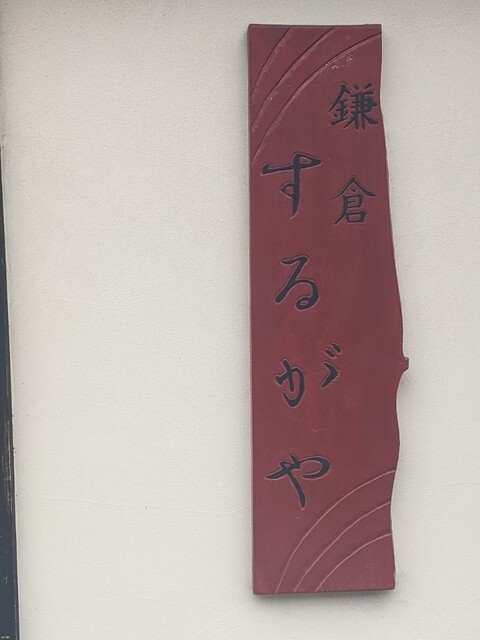 鎌倉
するがや